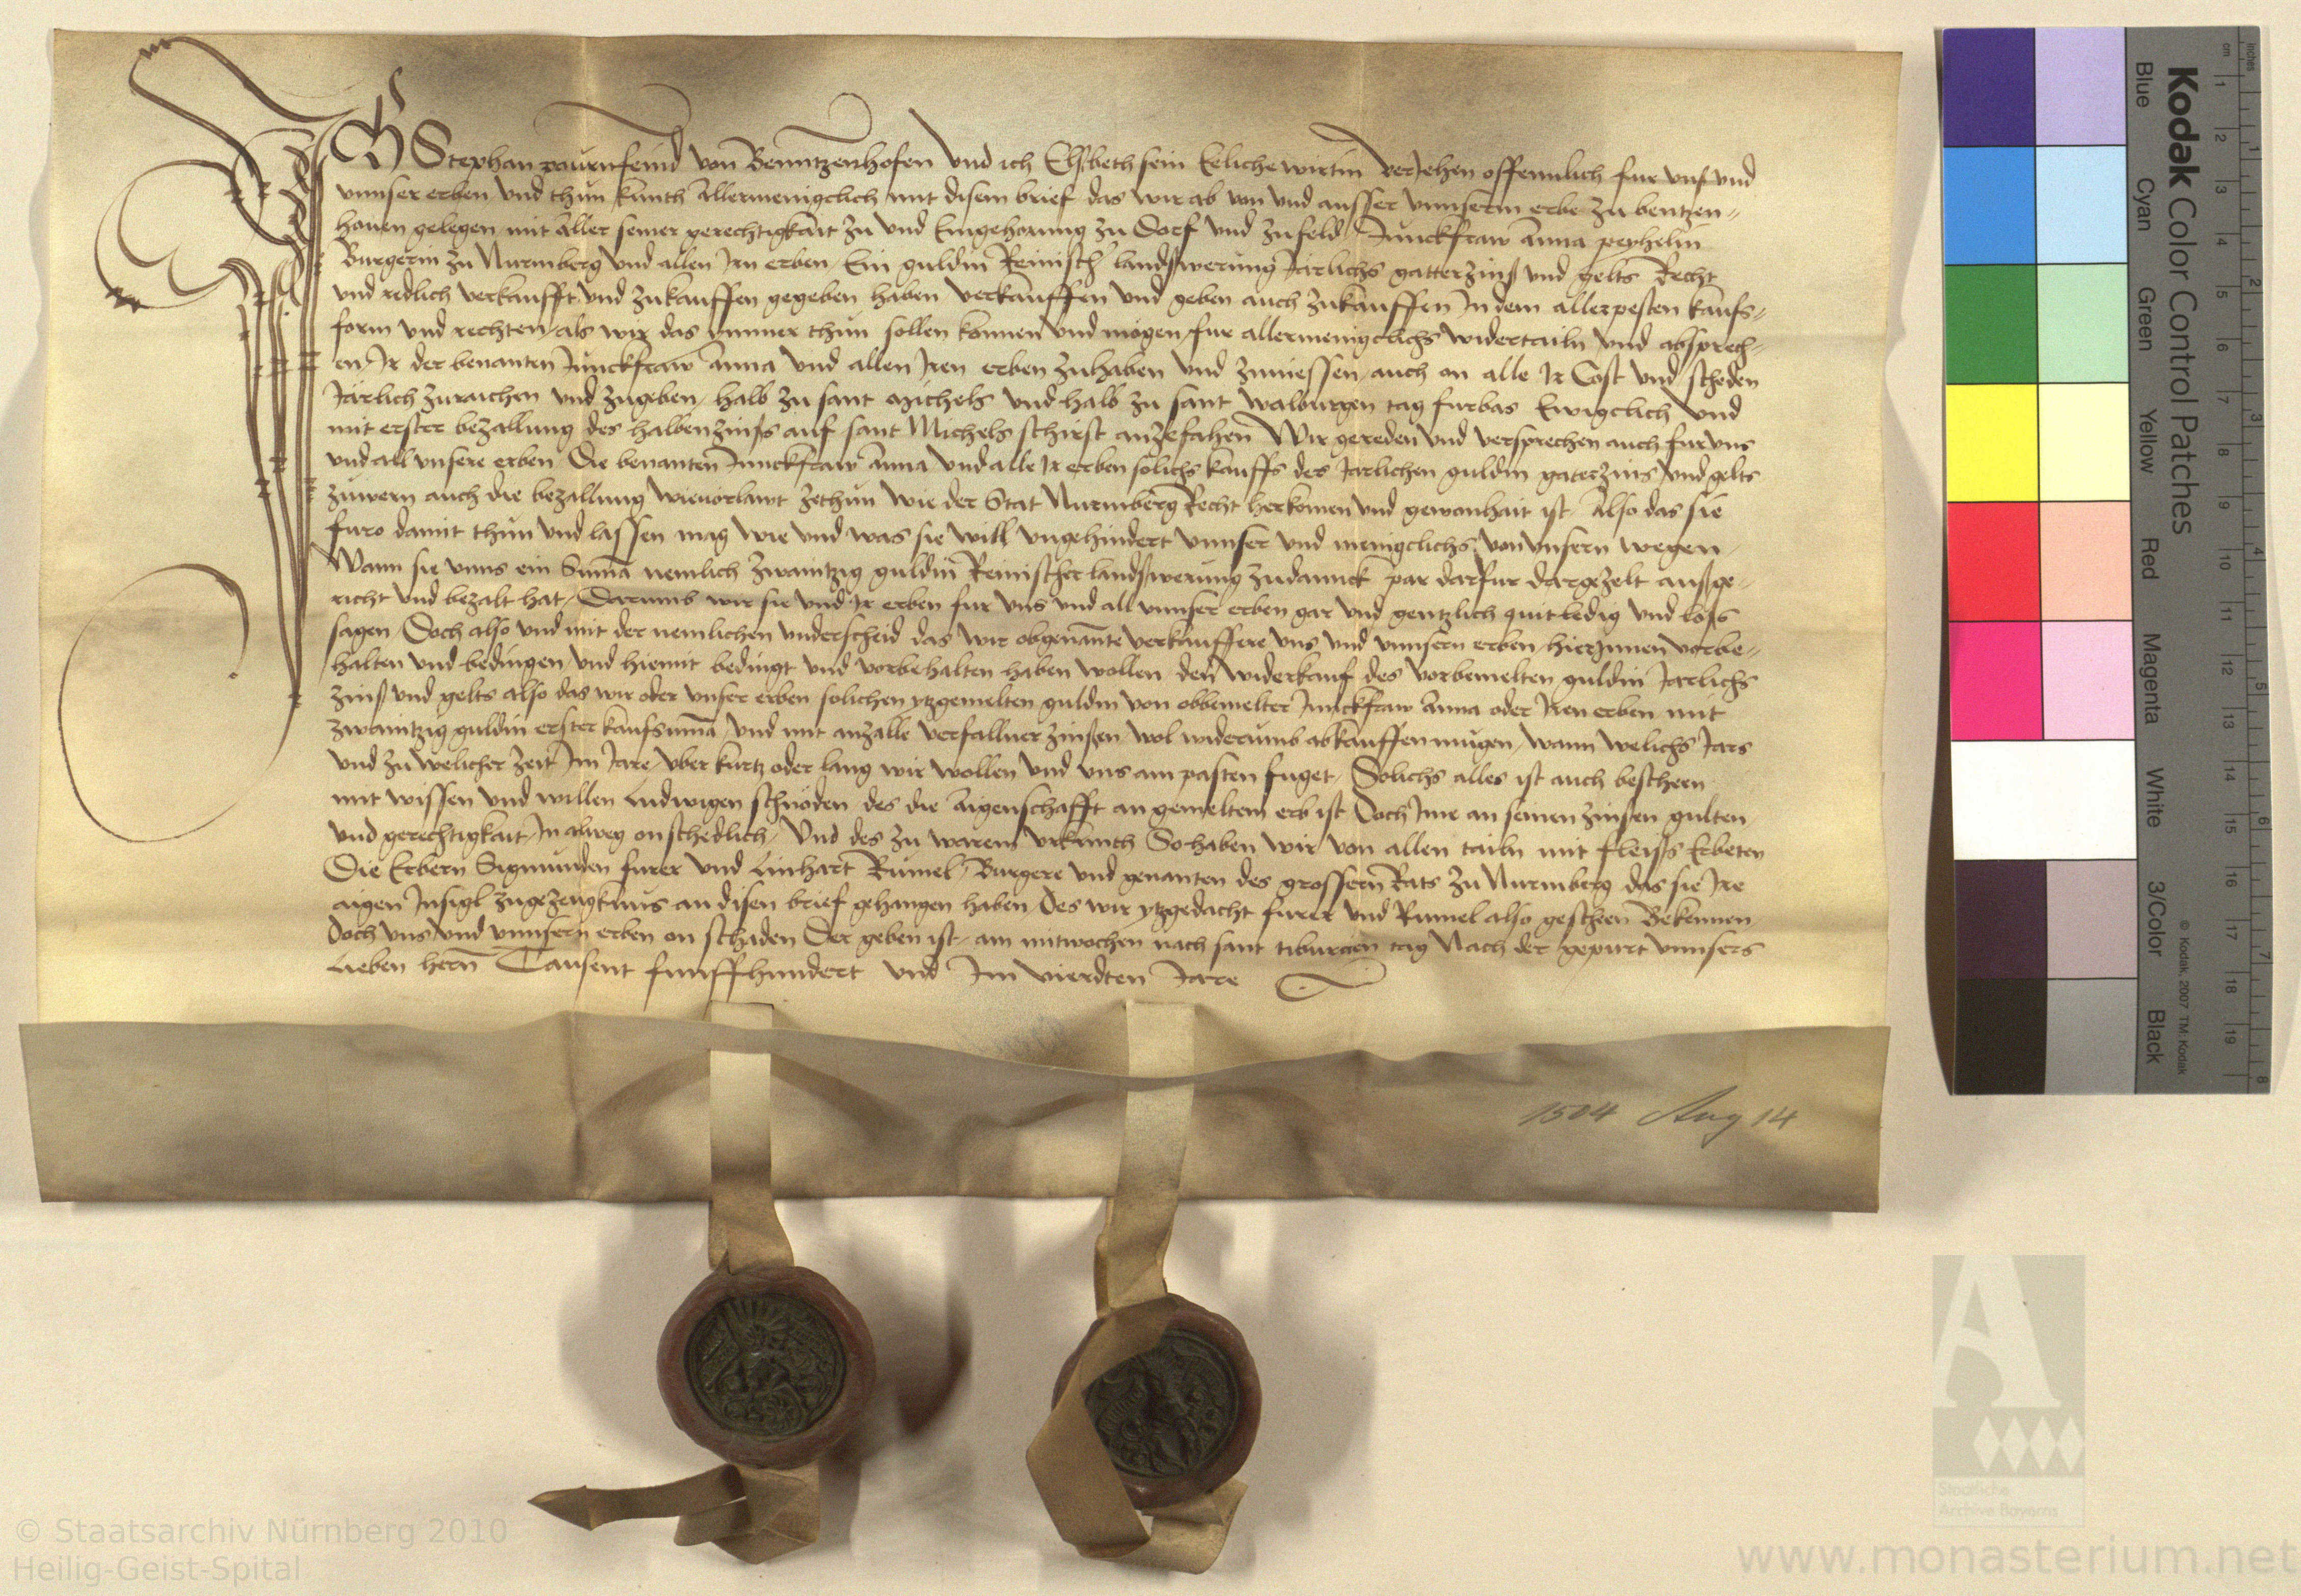 ICH Stephan paurnfeind von Benntzenhofen vnd ich Elsbeth sein Eeliche wirtin verJehen offennlich fur vns vnd
vnnser erben vnd thun kunth Allermenigclich mit disem brief das wir ab von vnd ausser vnnserm erbe zu bentzen-
houen gelegen mit aller seiner gerechtigkait zu vnd Eingehorung zu Dorf vnd zu feld Junckfraw Anna
Burgerin zu Nurmberg vnd allen Jrn erben Ein guldin Reinisch landßwerung Jarlichs gatterzinß vnd gelts Recht
vnd redlich verkaufft vnd zukauffen gegeben haben verkauffen vnd geben auch zukauffen In dem allerpesten kaufs-
form vnd rechten als wir das ymmer thun sollen konnen vnd mogen fur allermenigclichs widertailn vnd absprech-
en Jr der benanten Junckfraw Anna vnd allen Jren erben zuhaben vnd zuniessen auch on alle Jr Cost vnd scheden
Järlich zuraichen vnd zugeben halb zu sant Michels vnd halb zu sant walburgen tag furbas Ewigclich vnd
mit erster bezallung des halbenzinß auf sant Michels schirst anzefahen Wir gereden vnd versprechen auch fur vns
vnd all vnsere erben Die benanten Junckfraw Anna vnd alle Jr erben solichs kauffs des Jarlichen guldin gaterzins vnd gelts
zuwern auch die bezallung wieuorlawt zethun wie der Stat Nurmberg Recht herkomen vnd gewonhait ist Also das sie
furo damit thun vnd lassen mag wie vnd was sie will vngehindert vnnser vnd menigclichs von vnsern wegen
Wann sie vnns ein Summa nemlich zwaintzig guldin Reinischer landßwerung zudanck par darfur dargezelt außge-
richt vnd bezalt hat Darumb wir sie vnd Jr erben fur vns vnd all vnnser erben gar vnd gentzlich quit ledig vnd loß
sagen Doch also vnd mit der nemlichen vnderscheid das wir obgenante verkauffere vns vnd vnnsern erben hierJnnen vorbe-
halten vnd bedingen vnd hiemit bedingt vnd vorbehalten haben wollen den widerkauf des vorbemelten guldin Jarlichs
zinß vnd gelts also das wir oder vnser erben solichen ytzgemelten guldin von obbemelter Junckfraw Anna oder Jren erben mit
zwaintzig guldin erster kaufsuma vnd mit anzalle verfallner zinßen wol widerumb abkauffen mugen wann welichs Jars
vnd zu welicher zeit Jm Jare vber kurtz oder lang wir wollen vnd vns am pasten fuget Solichs alles ist auch bescheen
mit wissen vnd willen Ludwigen schnöden des die Aigenschafft an gemeltem erb ist Doch Jme an seinen zinsen gulten
vnd gerechtigkait Jn alweg onschedlich Vnd des zu warem vrkunth So haben wir von allen tailn mit fleiß Erbeten
Die Erbern Sigmunden furer vnd Linhart Rumel Burgere vnd genanten des grossern Rats zu Nurmberg das sie Jre
aigen Jnsigl zugezeugknus an disen brief gehangen haben Des wir ytzgedacht furer vnd Rumel also gescheen Bekennen
doch vns vnd vnnsern erben on schaden Der geben ist am mitwochen nach sant tiburcien tag Nach der gepurt vnnsers
Lieben hern Tausent funffhundert vnd Jm vierdten Jare
1504 Aug 14
Kodak Color Control Patches
Blue Cyan Green Yellow Red Magenta White 3/Color Black
© Kodak, 2007 TM: Kodak
inches 1 2 3 4 5 6 7 8
cm 1 2 3 4 5 6 7 8 9 10 11 12 13 14 15 16 17 18 19
Staatliche
Archive Bayerns
© Staatsarchiv Nürnberg 2010
Heilig-Geist-Spital
www.monasterium.net